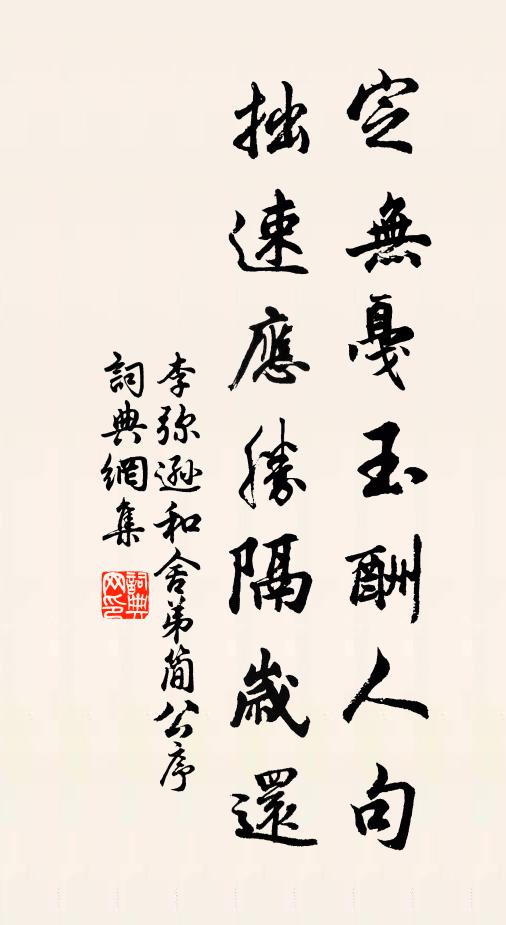 定無戛玉酬人句
拙速應勝隔歲還
李弥遜和舍弟簡公序
詞典網集
詞典網印